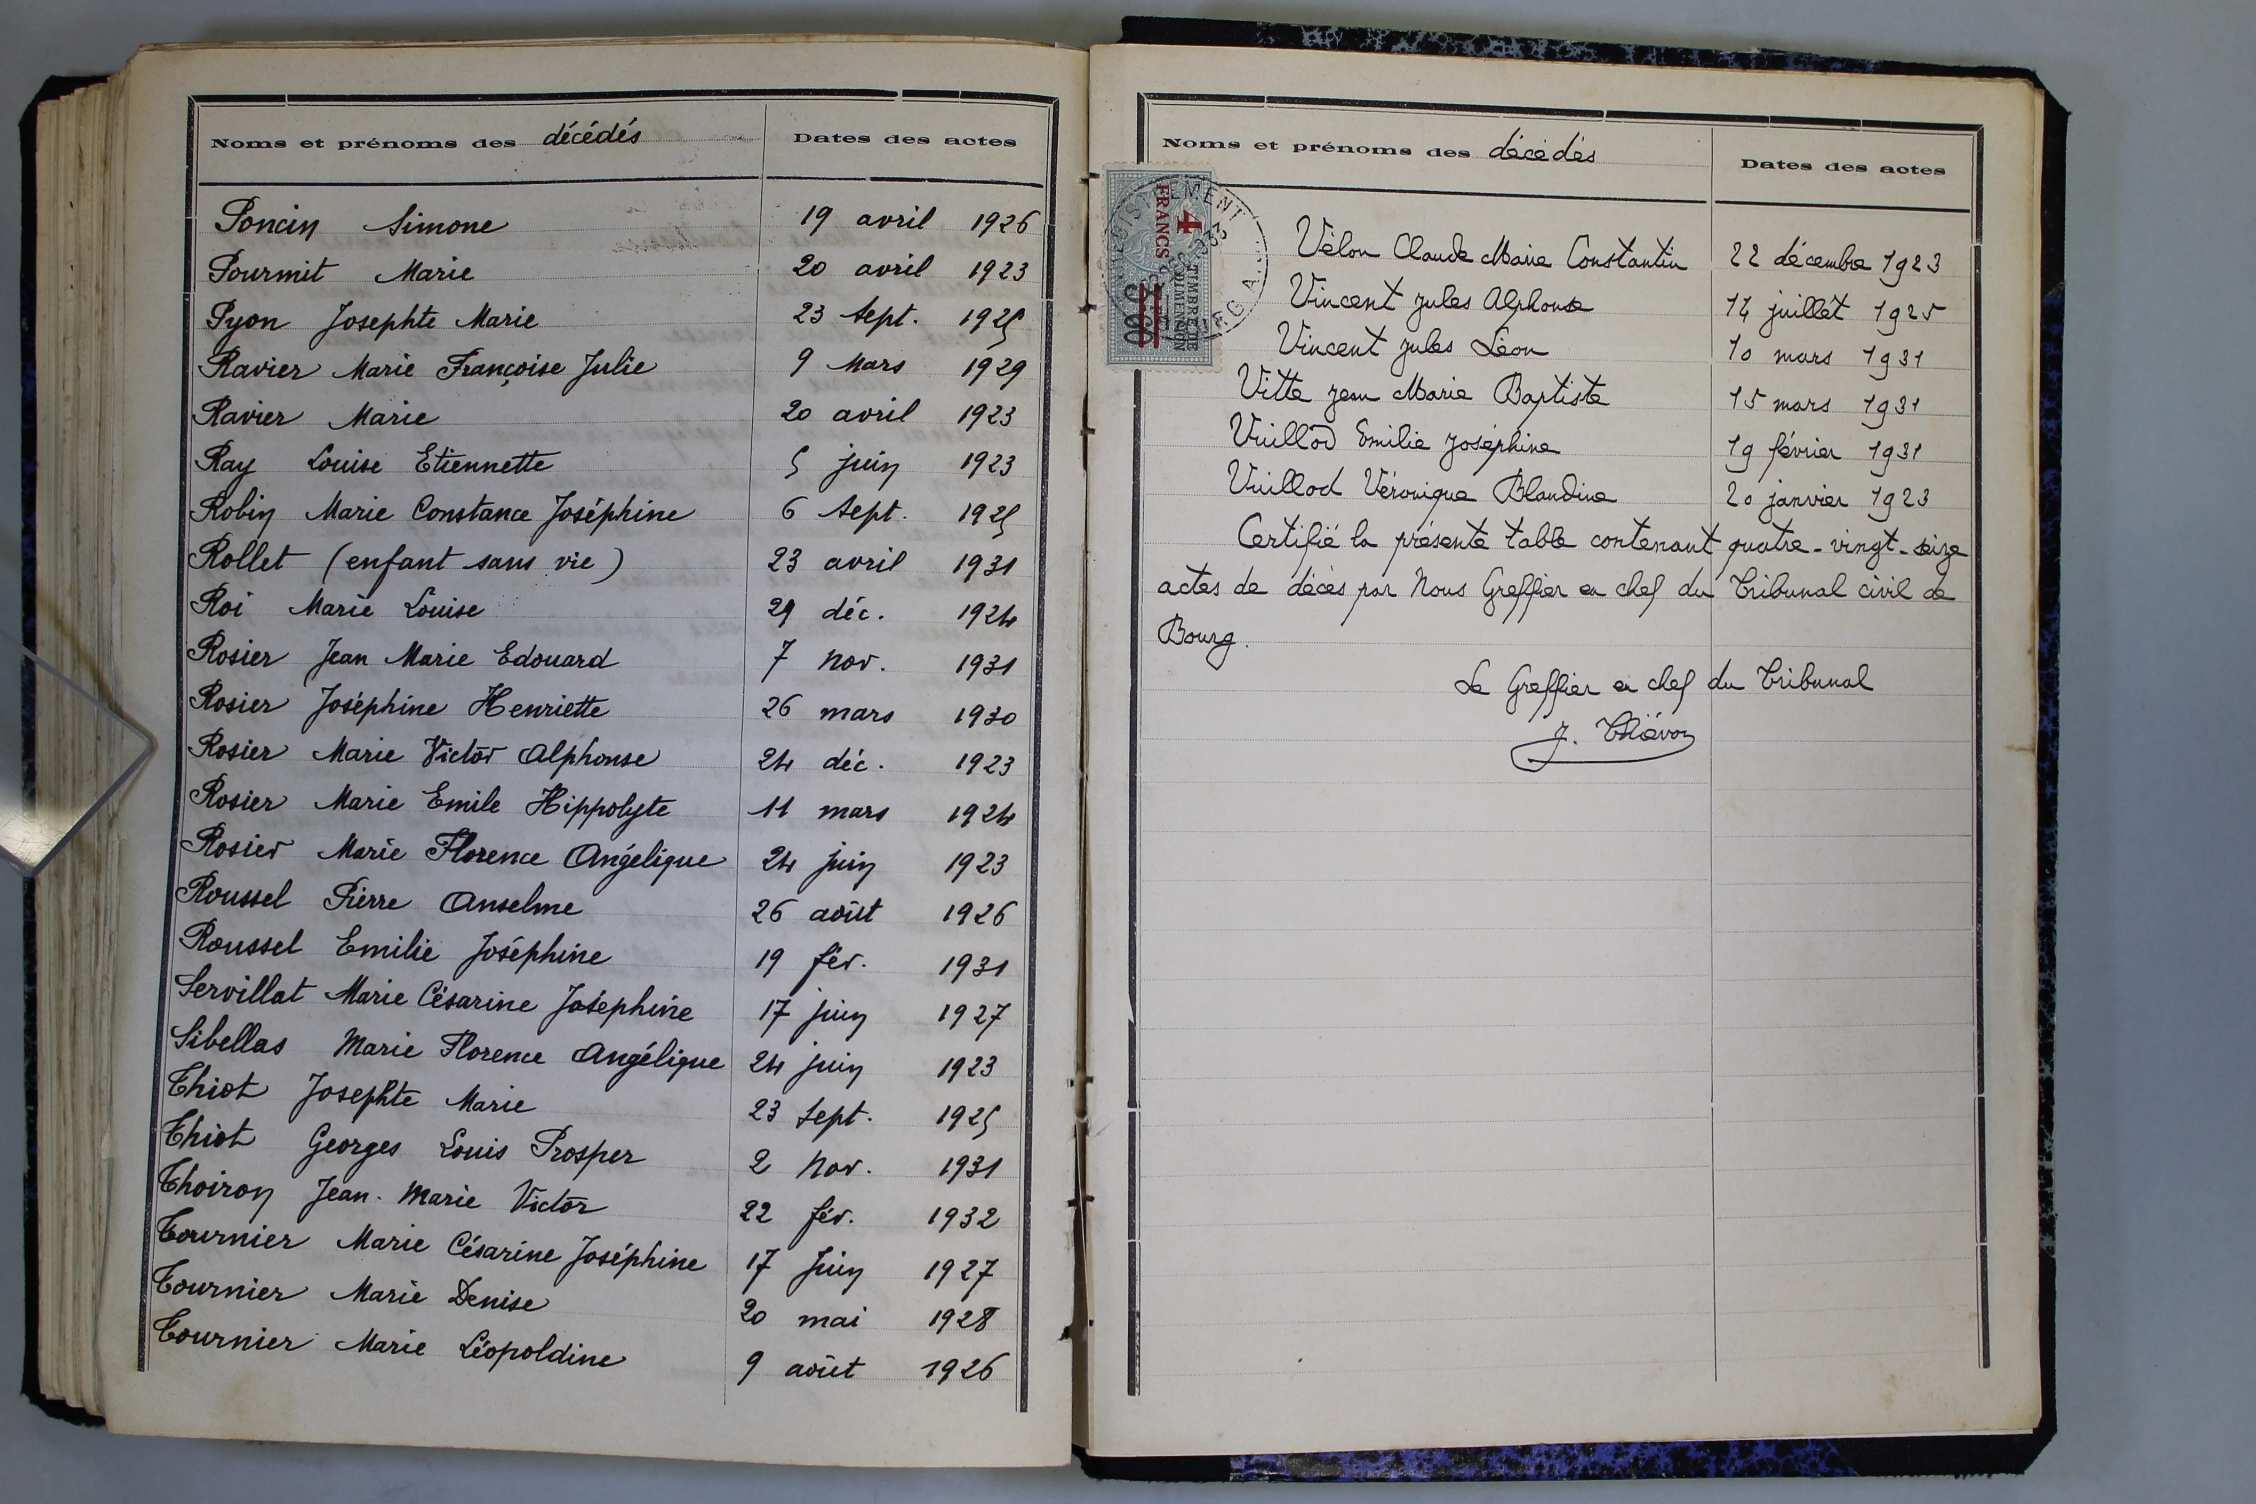 Noms et prénoms des décédés Dates des actes
Poncin Simone 19 avril 1926
Pourmit Marie 20 avril 1923
Pyon Josephte Marie 23 Sept. 1925
Ravier Marie Françoise Julie 9 Mars 1929
Ravier Marie 20 avril 1923
Ray Louise Etiennette 5 juin 1923
Robin Marie Constance Joséphine 6 Sept. 1925
Rollet (enfant sans vie) 23 avril 1931
Roi Marie Louise 29 déc. 1924
Rosier Jean Marie Edouard 7 nov. 1931
Rosier Joséphine Henriette 26 mars 1930
Rosier Marie Victor Alphonse 24 déc. 1923
Rosier Marie Emile Hippolyte 11 mars 1924
Rosier Marie Florence Angélique 24 juin 1923
Roussel Pierre Anselme 26 août 1926
Roussel Emilie Joséphine 19 fév. 1931
Servillat Marie Césarine Joséphine 17 juin 1927
Sibellas Marie Florence Angélique 24 juin 1923
Thiot Josephte Marie 23 Sept. 1925
Thiot Georges Louis Prosper 2 Nov. 1931
Thoiron Jean-Marie Victor 22 fév. 1932
Tournier Marie Césarine Joséphine 17 Juin 1927
Tournier Marie Denise 20 mai 1928
Tournier Marie Léopoldine 9 août 1926
Noms et prénoms des décédés Dates des actes
4
FRANCS
TIMBRE DE
DIMENSION
3F60
Vélon Claude Marie Constantin 22 décembre 1923
Vincent Jules Alphonse 14 juillet 1925
Vincent Jules Léon 10 mars 1931
Vitte Jean Marie Baptiste 15 mars 1931
Vuillod Emilie Joséphine 19 février 1931
Vuillod Véronique Blandine 20 janvier 1923
Certifié la présente table contenant quatre-vingt-seize
actes de décès par Nous Greffier en chef du Tribunal civil de
Bourg.
Le Greffier en chef du Tribunal
J. Thévon